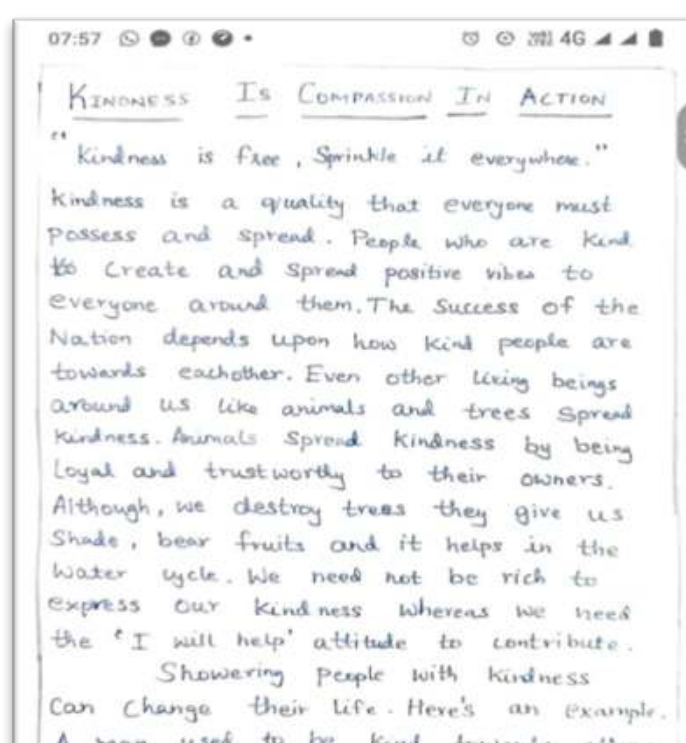 07:57 4G
KINDNESS IS COMPASSION IN ACTION
"Kindness is free, Sprinkle it everywhere."
Kindness is a quality that everyone must
possess and spread. People who are kind
to Create and Spread positive vibes to
everyone around them. The Success of the
Nation depends upon how kind people are
towards eachother. Even other living beings
around us like animals and trees Spread
kindness. Animals Spread kindness by being
Loyal and trustworthy to their owners.
Although, we destroy trees they give us
Shade, bear fruits and it helps in the
Water cycle. We need not be rich to
express our kindness whereas we need
the 'I will help' attitude to contribute.
Showering people with kindness
Can Change their Life. Here's an example.
A used to be kind towards